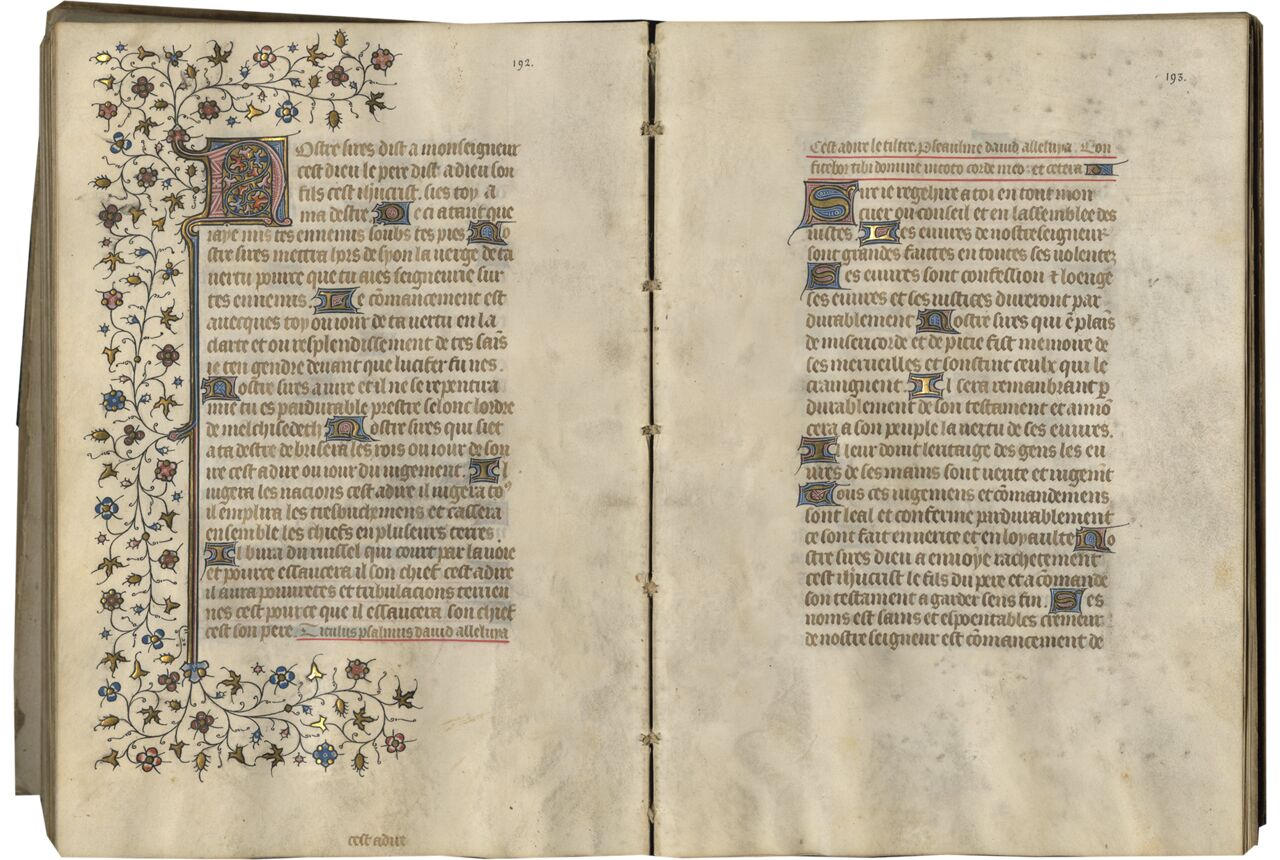 192.
Nostre sires dist a monseigneur
cest dieu le pere dist a dieu son
fils cest ihucrist. sies toy a
ma destre. De ci a tant que
iaye mis tes ennemis soubs tes pies No
stre sires mettra hors de syon la verge de ta
vertu pource que tu aies seigneurie sur
tes ennemis. Le cōmancement est
avecques toy ou iour de ta vertu en la
clarte et ou resplendissement de tes sais
ie ten gendre devant que lucifer fu nes.
Nostre sires a iure et il ne se repentira
mie tu es pardurable prestre selonc lordre
de melchisedech Nostre sires qui siet
a ta destre debrisera les rois ou iour de son
ire cest adire ou iour du iugement. Il
iugera les nacions cest adire il iugera to9
il emplira les tresbuchemens et cassera
ensemble les chiefs en pluseurs terres
Il bura du ruissel qui court par la voie
et pource essaucera il son chief cest adire
il aura povretes et tribulacions terrien
nes cest pource que il essaucera son chief
cest son pere. Titulus psalmus david alleluya
cest adire
193.
Cest adire le tiltre. Pseaulme david alleluya. Con
fitebor tibi domine in toto corde meo. et cetera
Sire ie regehire a toi en tout mon
cuer ou conseil et en lassemblee des
iustes. Les euvres de nostre seigneur
sont grandes faittes en toutes ses volentez
Ses euvres sont confession & loenge
ses euvres et ses iustices dureront par
durablement Nostre sires qui ē plais
de misericorde et de pitie fist memoire de
ses merveilles et
craingnent. Il sera remanbrant p
durablement de son testament et annō
cera a son peuple la vertu de ses euvres.
Il leur doint leritaige des gens les eu
vres de ses mains sont verite et iugemt
Tous ces iugemens et cōmandemens
sont leal et conferme pardurablement
ce sont fait en verite et en loyaulte No
stre sires dieu a envoye rachetement
cest ihucrist le fils du pere et a cōmande
son testament a garder sens fin. Ses
noms est sains et espoentables cremeur
de nostre seigneur est cōmancement de